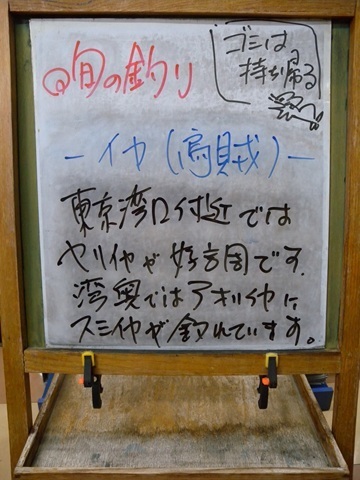 ◎旬の釣り
ゴミは
持ち帰る
－イカ（烏賊）－
東京湾口付近では
ヤリイカが好調です。
湾奥ではアオリイカに
スミイカが釣れています。